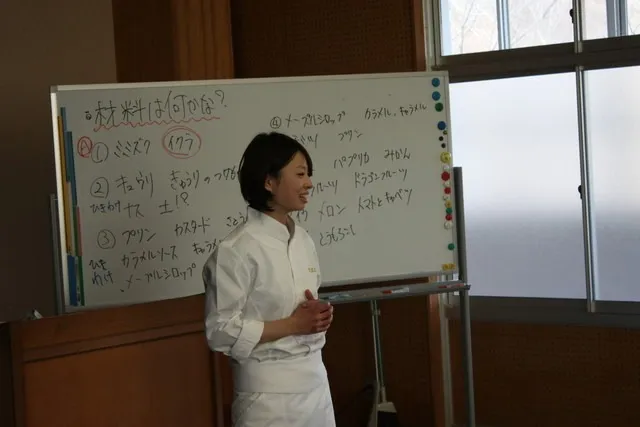 材料は何かな?
A ① ミミズク イクラ
② キュウリ きゅうりのつけもの
ひきわけ ナス 土!?
③ プリン カスタード さとう
ひき カラメルソース キャラメ
わけ メープルシロップ
④ メープルシロップ カラメル、キャラメル
プリン
パプリカ みかん
ドラゴンフルーツ
メロン トマトとキャベツ
とうもろこし